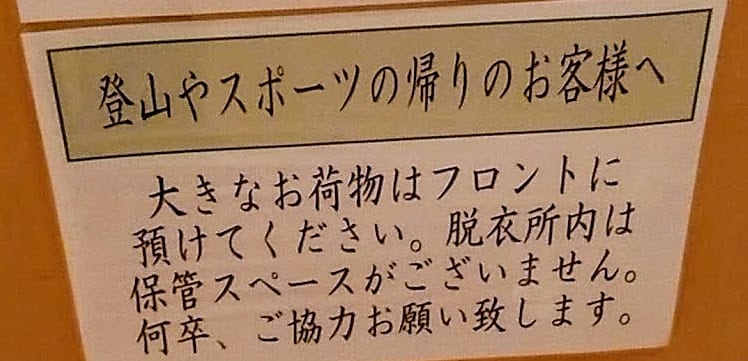 登山やスポーツの帰りのお客様へ
大きなお荷物はフロントに
預けてください。脱衣所内は
保管スペースがございません。
何卒、ご協力お願い致します。